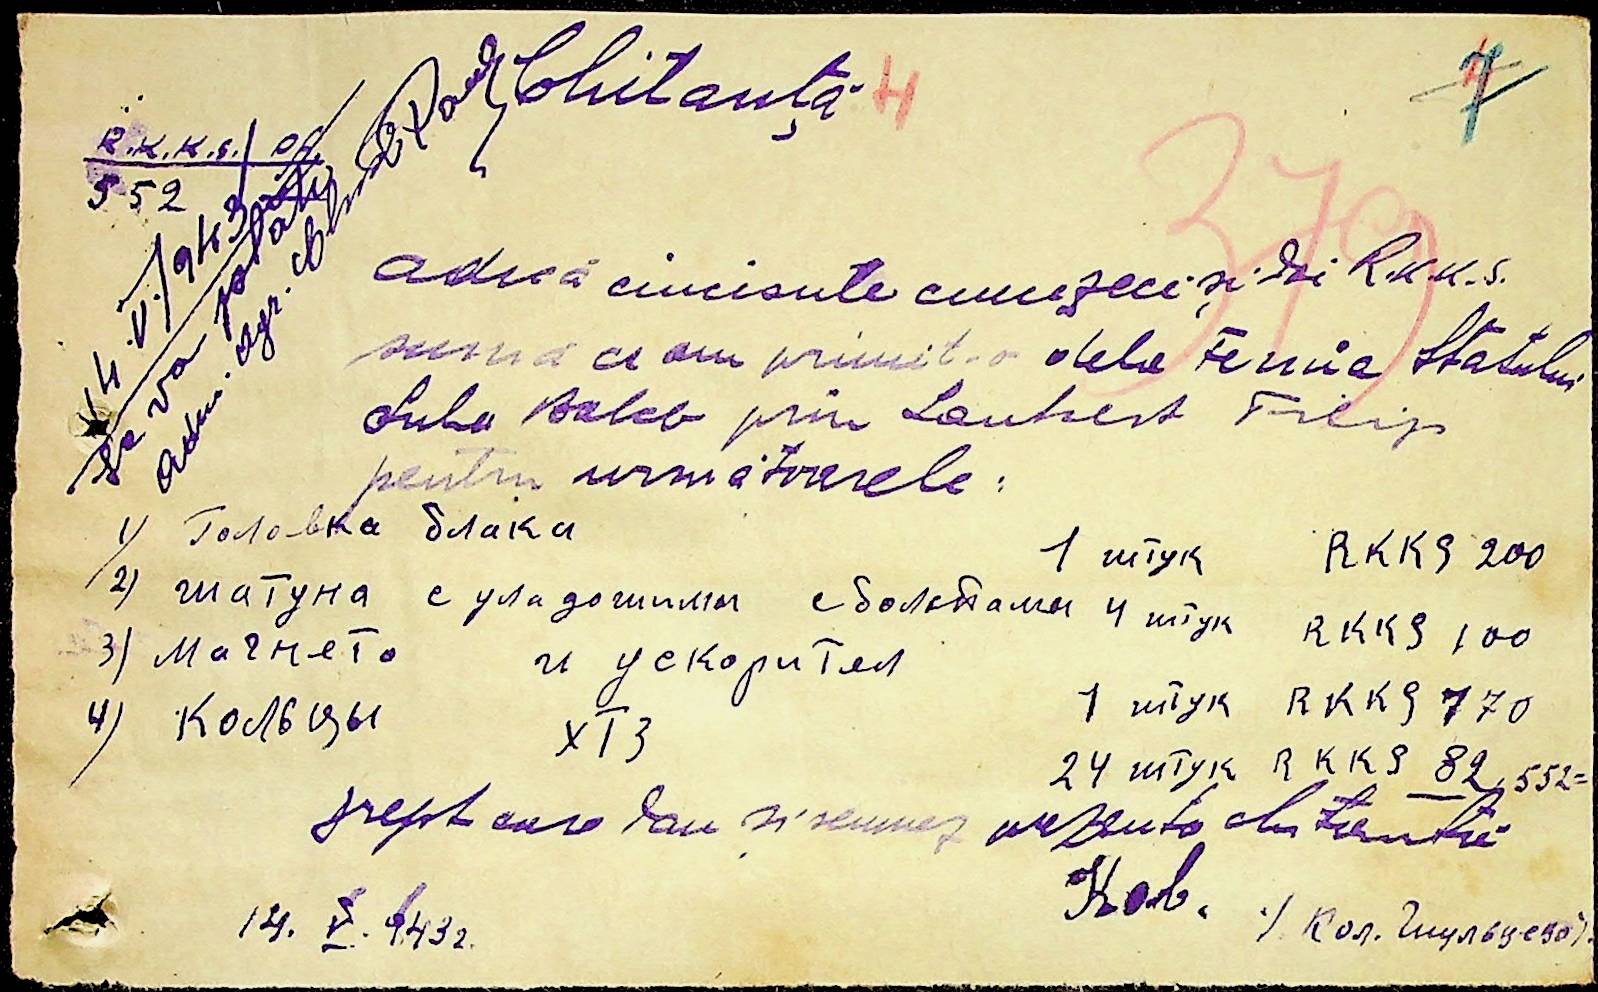 Chitanță 4
7
R.K.K.S.
552
379
14.V./943
Se va plăti
Adm. agr.
Adică cincisute cincizeci și doi R.K.K.S.
suma ce am primit-o dela Ferma Statului
prin Lambert Filip
pentru următoarele:
1) Головка блака 1 штук RKKS 200
2) шатуна с уладошими с болтами 4 штук RKKS 100
3) Магнето и ускорител 1 штук RKKS 170
4) Кольцы ХТЗ 24 штук RKKS 82, 552=
drept care dau și semnez prezenta chitanță
Ков.
14. V. 943 г. /Кол.